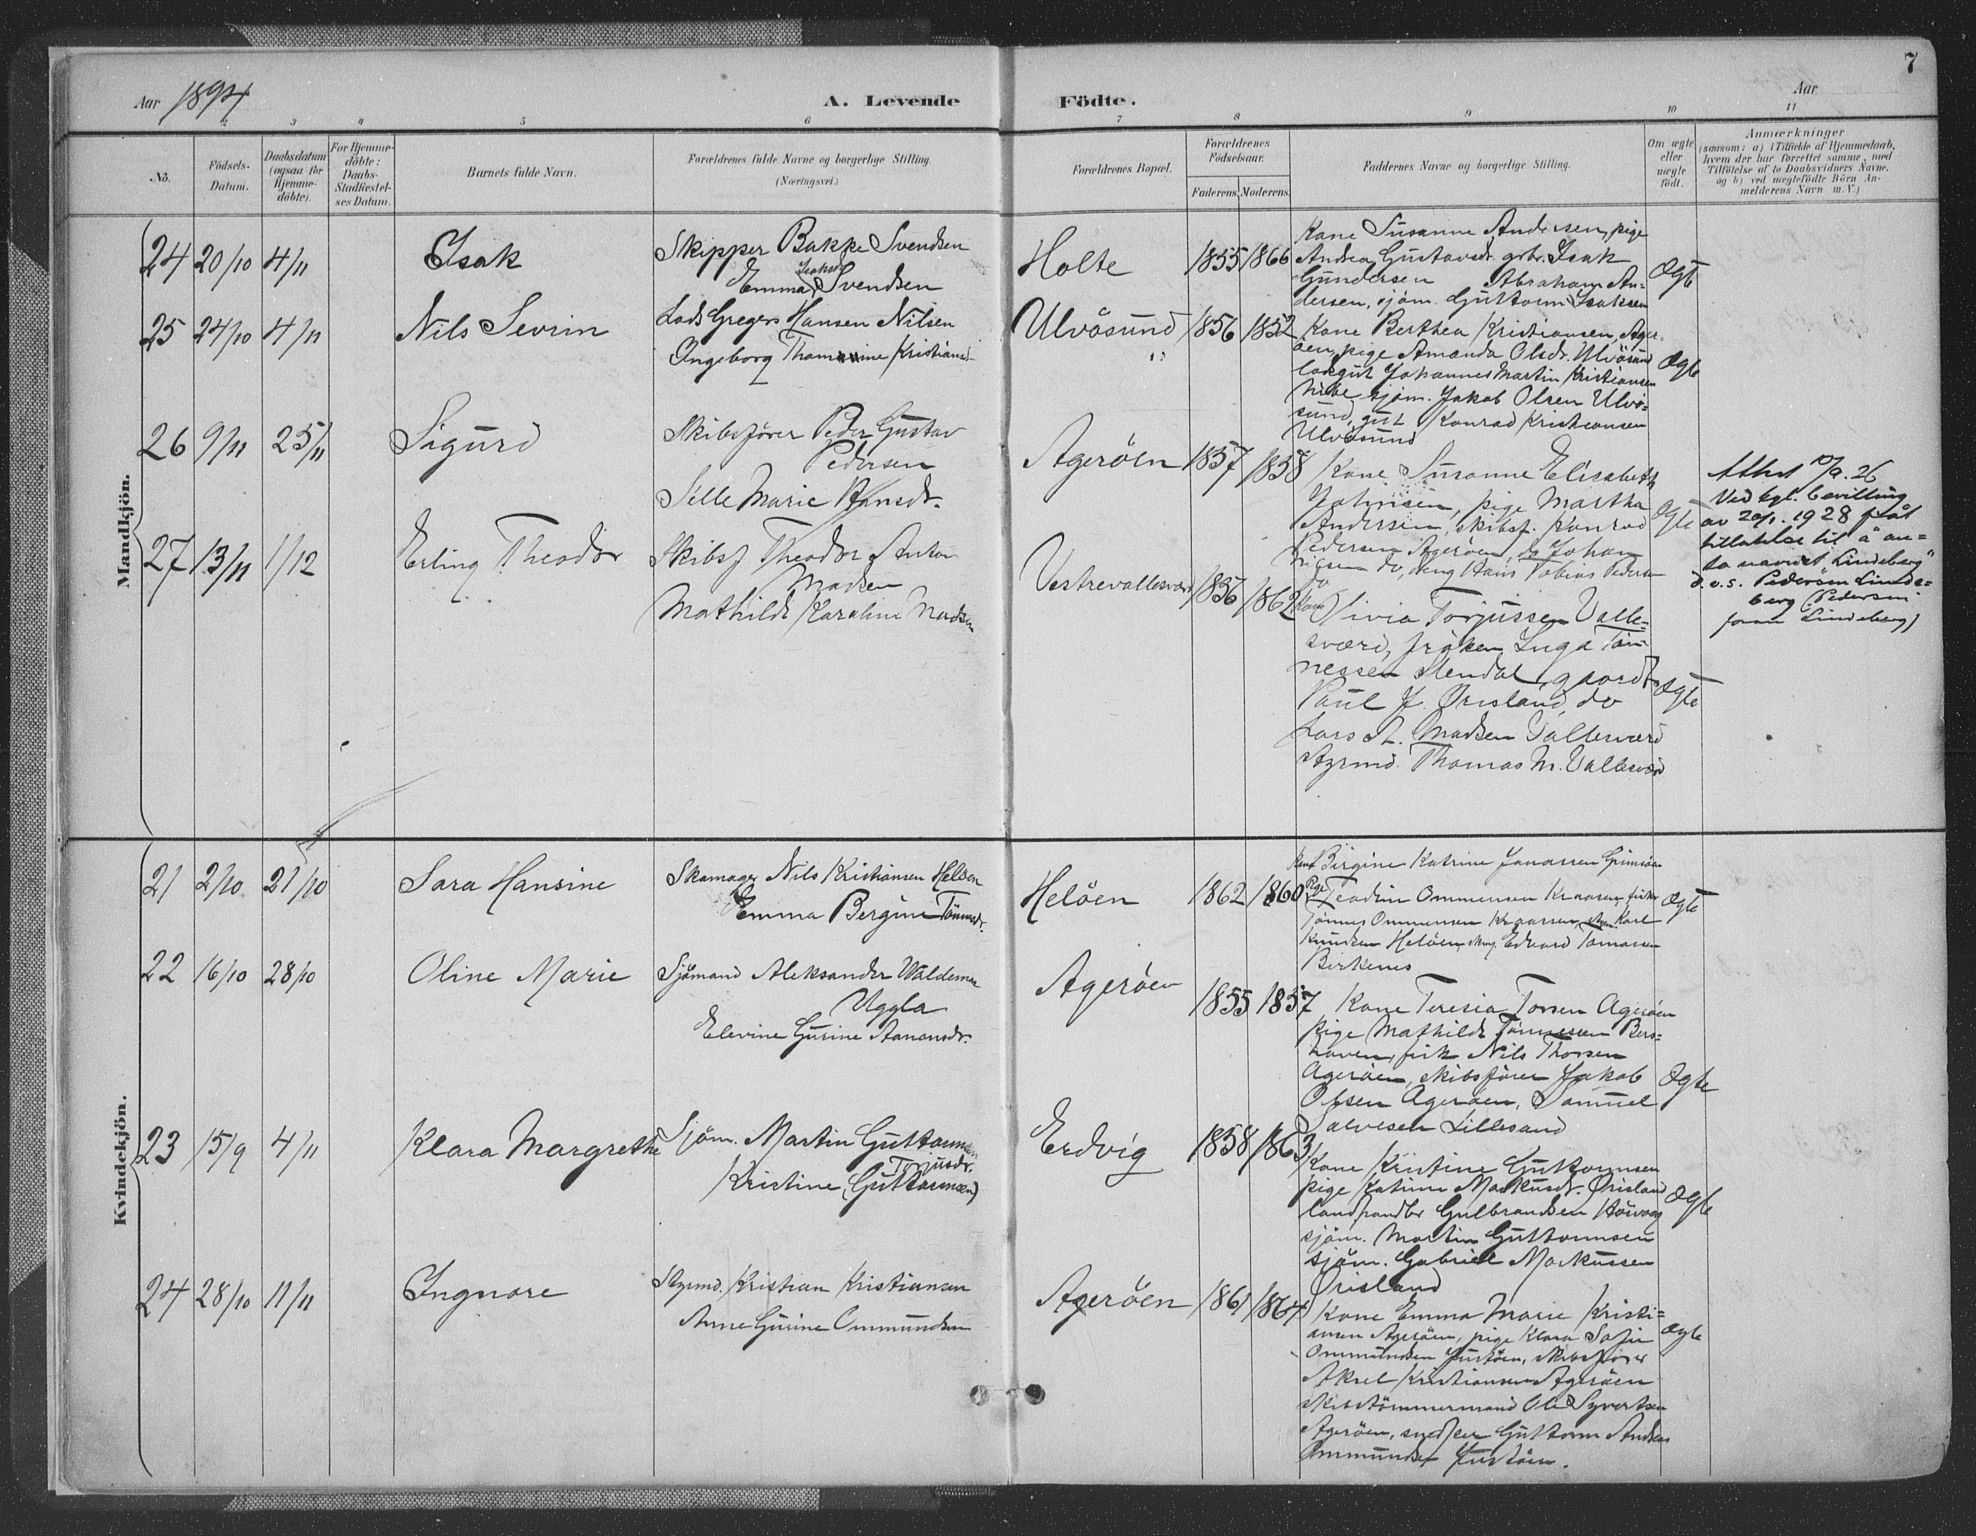 7
Aar 1894
A. Levende Födte.
Aar
2 3 4 5 6 7 8 9 10 11
No.
Födsels-
Datum.
Daabsdatum
(ogsaa for
Hjemme-
döbte).
For Hjemme-
döbte:
Daabs-
Stadfæstel-
ses Datum.
Barnets fulde Navn.
Forældrenes fulde Navne og borgerlige Stilling.
(Næringsvei.)
Forældrenes Bopæl.
Forældrenes
Födselsaar.
Faderens. Moderens.
Faddernes Navne og borgerlige Stilling.
Om ægte
eller
uægte
födt.
Anmærkninger
(saasom: a) i Tilfælde af Hjemmedaab,
hvem der har forrettet samme, med
Tilföielse af to Daabsvidners Navne.
og b) ved uægtefödte Börn An-
melderens Navn m. V.)
Mandkjön.
24 20/10 4/11 Isak
Skipper Bakke Svendsen
Isaksd.
Emma Svendsen
Holte 1855 1866
Kone Susanne Andersen, pige
Andrea Gustavsdr. grbr. Isak
Gundersen Abraham An-
dersen, sjöm. Guttorm Isaksen
Ægte
25 24/10 4/11 Nils Sevrin
Lods Gregers Hansen Nilsen
Ingeborg Thomine Kristiansd.
Ulvösund 1856 1852
Kone Berthea Kristiansen, Ager-
öen, pige Amanda Olsdr. Ulvösund
losgut Johannes Martin Kristiansen
sjöm. Jakob Olsen Ulvö-
sund, gut Konrad Kristiansen
Ulvösund
Ægte
26 9/11 25/11 Sigurd
Skibsförer Peder Gustav
Pedersen
Sille Marie Hansdr.
Ageröen 1857 1858
Kone Susanne Elisabeth
Johnsen, pige Martha
Andersen, skibsf. Konrad
Pedersen Ageröen, Johan
do, Hans Tobias Pedersen
do
Ægte
Attest 10/9. 26
Ved kgl. bevilling
av 20/1. 1928 fåt
tillatelse til å an-
ta navnet "Lindeberg"
d.v.s. Pedersen Linde-
berg (Pedersen
foran Lindeberg)
27 13/11 1/12 Erling Theodor
Skibsf Theodor Anton
Madsen
Mathilde Karoline Madsen
Vestrevallesværd 1836 1862
Kone
Olivia Torjussen Valle-
sværd, fröken Inga Tön-
nessen Stendal, gaardbr
Paul J. Örisland, do
Lars A. Madsen Vallesværd
Styrmd. Thomas M. Vallesværd
Ægte
Kvindekjön.
21 2/10 21/10 Sara Hansine
Skomager Nils Kristiansen Helöen
Emma Bergine Tönnesdr.
Helöen 1862 1860
Kone Birgine Katrine Jonassen
Pige Teodrin Ommensen
Tönnes Ommensen Karl
Knudsen Helöen, Edvard Tomassen
Birkenes
Ægte
22 16/10 28/10 Oline Marie
Sjömand Aleksander Waldemar
Uggla
Elevine Gurine Aanonsdr.
Ageröen 1855 1857
Kone Teresia Torsen Ageröen
pige Mathilde Tönnessen Bers-
haven, fisk Nils Thorsen
Ageröen, skibsförer Jakob
Olsen Ageröen, Samuel
Salvesen Lillesand
Ægte
23 15/9 4/11 Klara Margrethe
Sjöm. Martin Guttormsen
Torjusdr.
Kristine (Guttormsen)
Erdvig 1858 1863
Kone Kristine Guttormsen
pige Katrine Markusdr. Örisland
landhandler Gulbrandsen Hövaag
sjöm. Martin Guttormsen
sjöm. Gabriel Markussen
Örisland
Ægte
24 28/10 11/11 Ingvore
Styrmd. Kristian Kristiansen
Anne Gurine Ommundsen
Ageröen 1861 1864
Kone Emma Marie Kristi-
ansen Ageröen, pige Klara Sofie
Ommundsen Justöen, skibsförer
Aksel Kristiansen Ageröen
skibstömmermand Ole Syvertsen
Ageröen, snedker Guttorm Andreas
Ommundsen Justöen.
Ægte